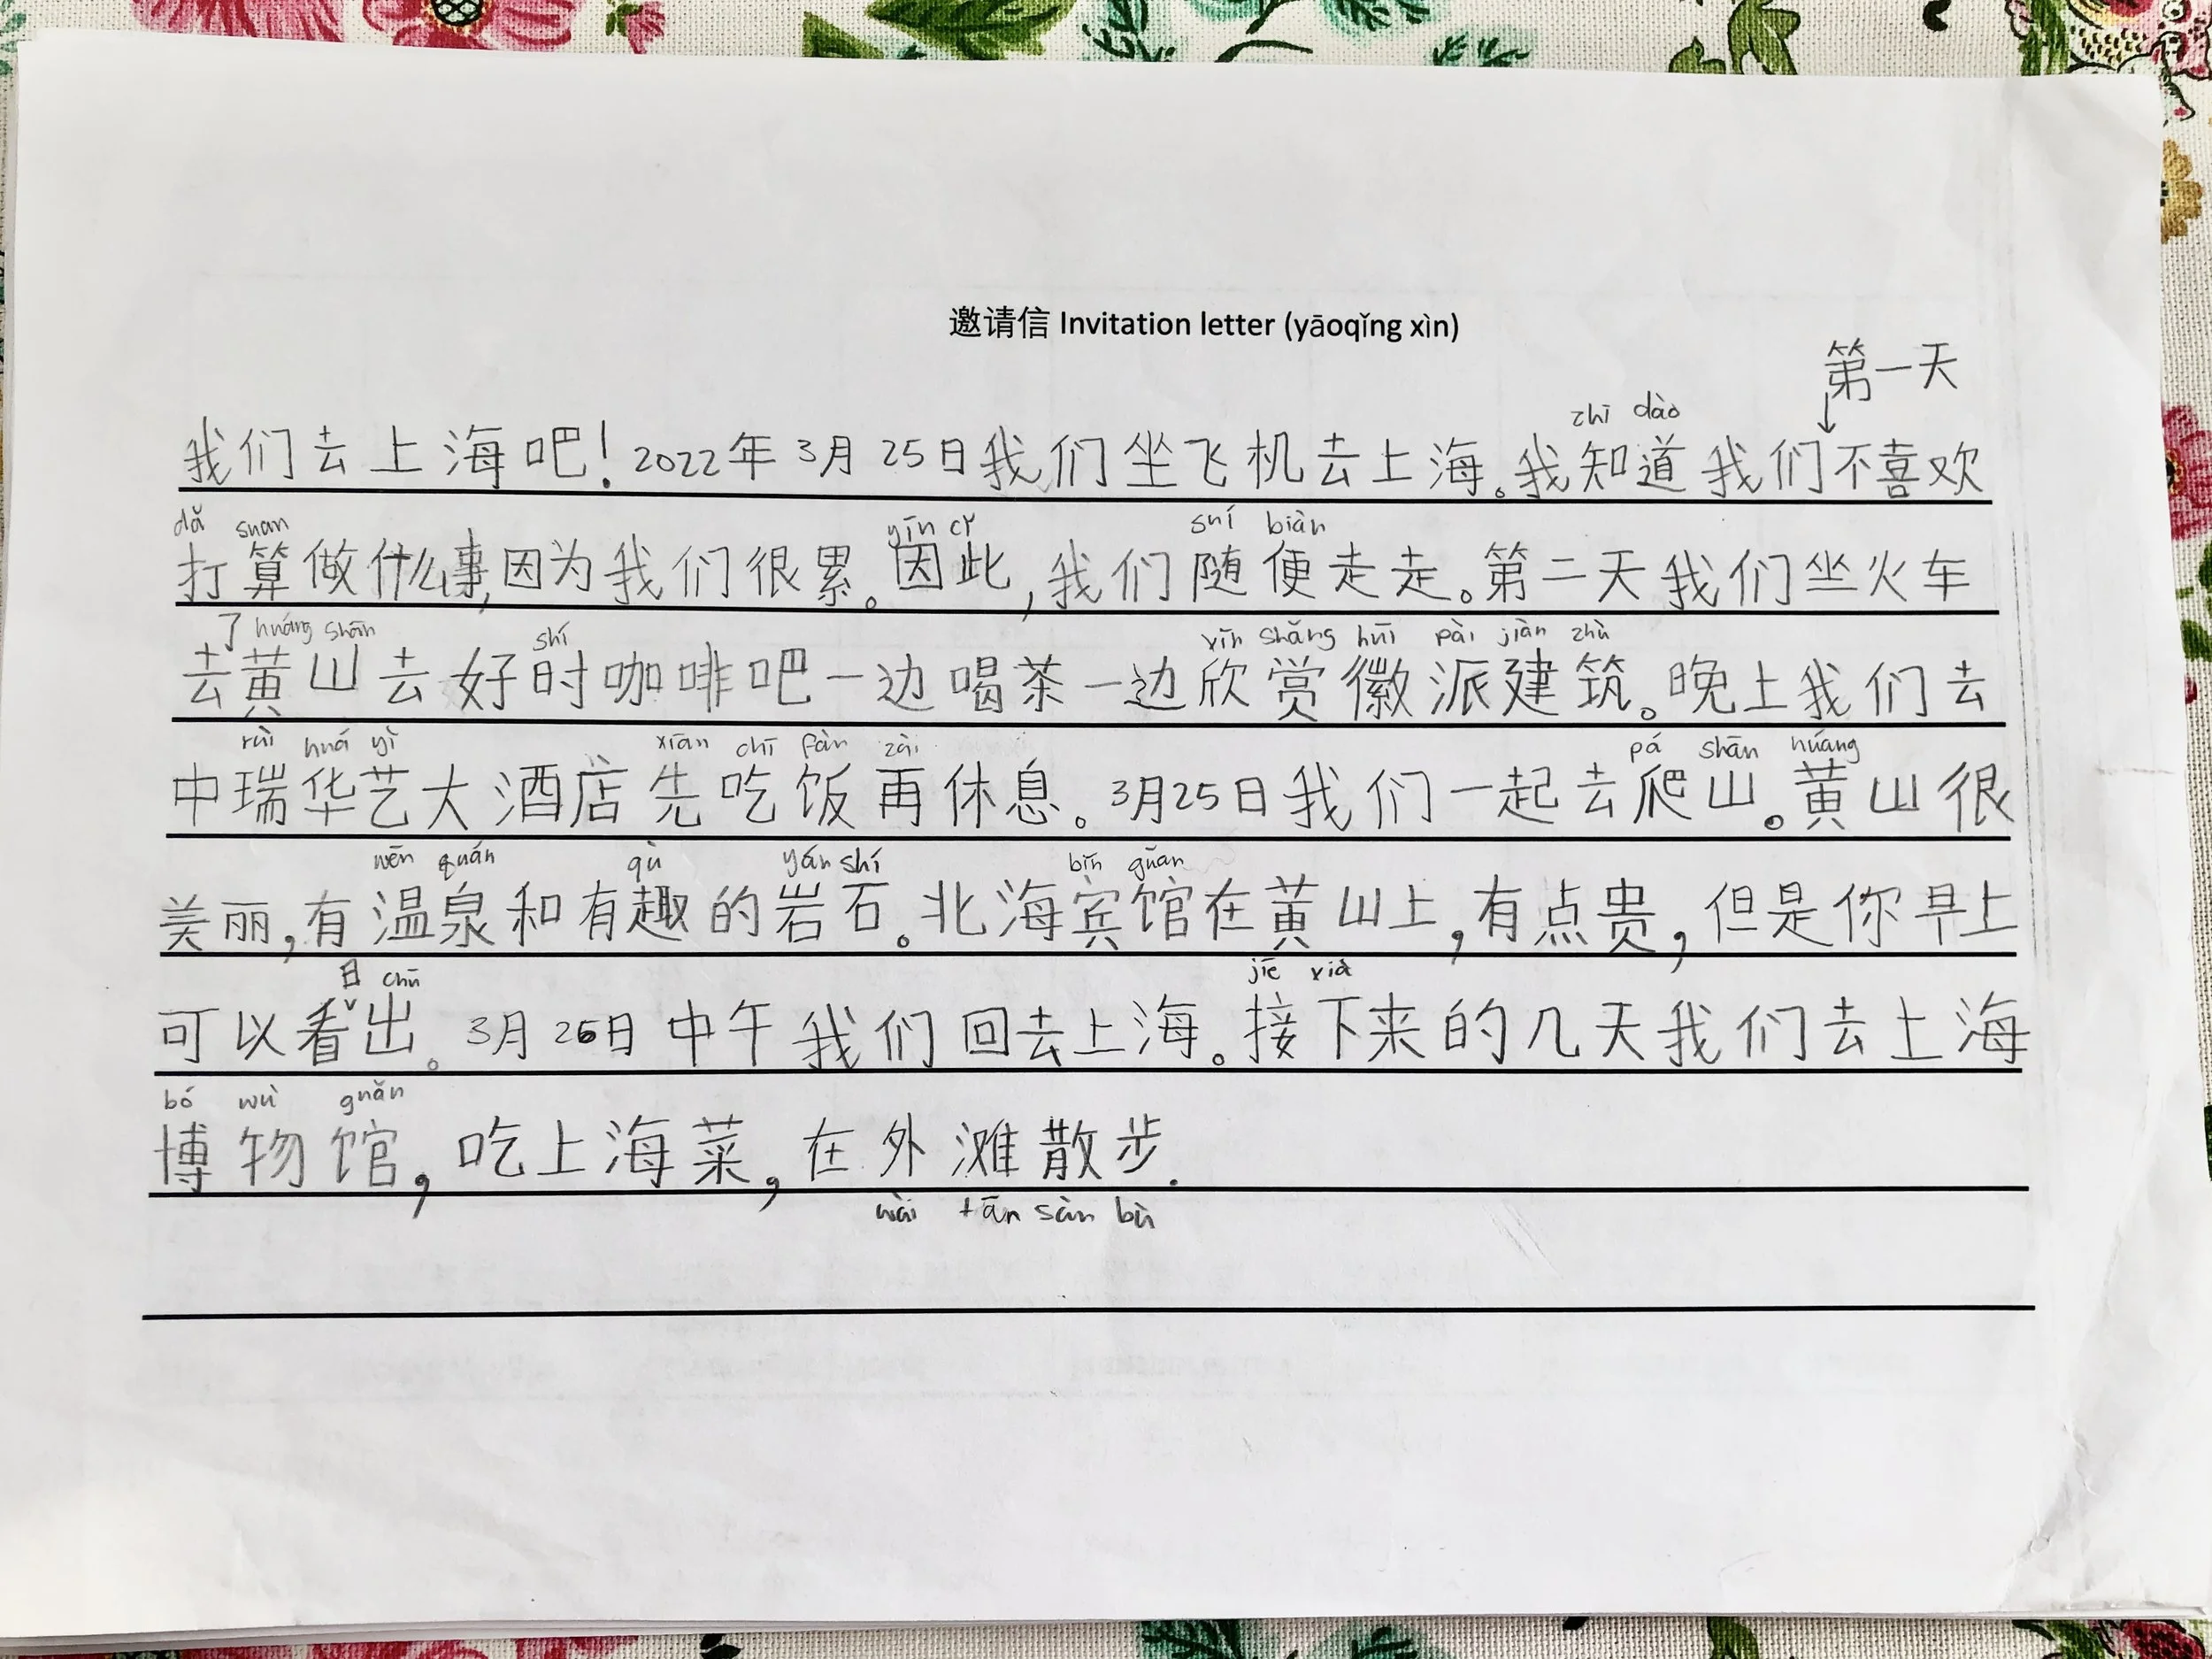 邀请信 Invitation letter (yāoqǐng xìn)
第一天
↓
zhī dào
我们去上海吧！2022年3月25日我们坐飞机去上海。我知道我们不喜欢
dǎ suan yīn cǐ suí biàn
打算做什么事,因为我们很累。因此,我们随便走走。第二天我们坐火车
了 huáng shān shí xīn shǎng huī pài jiàn zhù
去黄山去好时咖啡吧一边喝茶一边欣赏徽派建筑。晚上我们去
ruì huá yì xiān chī fàn zài pá shān huáng
中瑞华艺大酒店先吃饭再休息。3月25日我们一起去爬山。黄山很
wēn quán qù yán shí bīn guǎn
美丽,有温泉和有趣的岩石。北海宾馆在黄山上,有点贵,但是你早上
日 chū jiē xià
可以看出。3月26日中午我们回去上海。接下来的几天我们去上海
bó wù guǎn
博物馆,吃上海菜,在外滩散步.
wài tān sàn bù